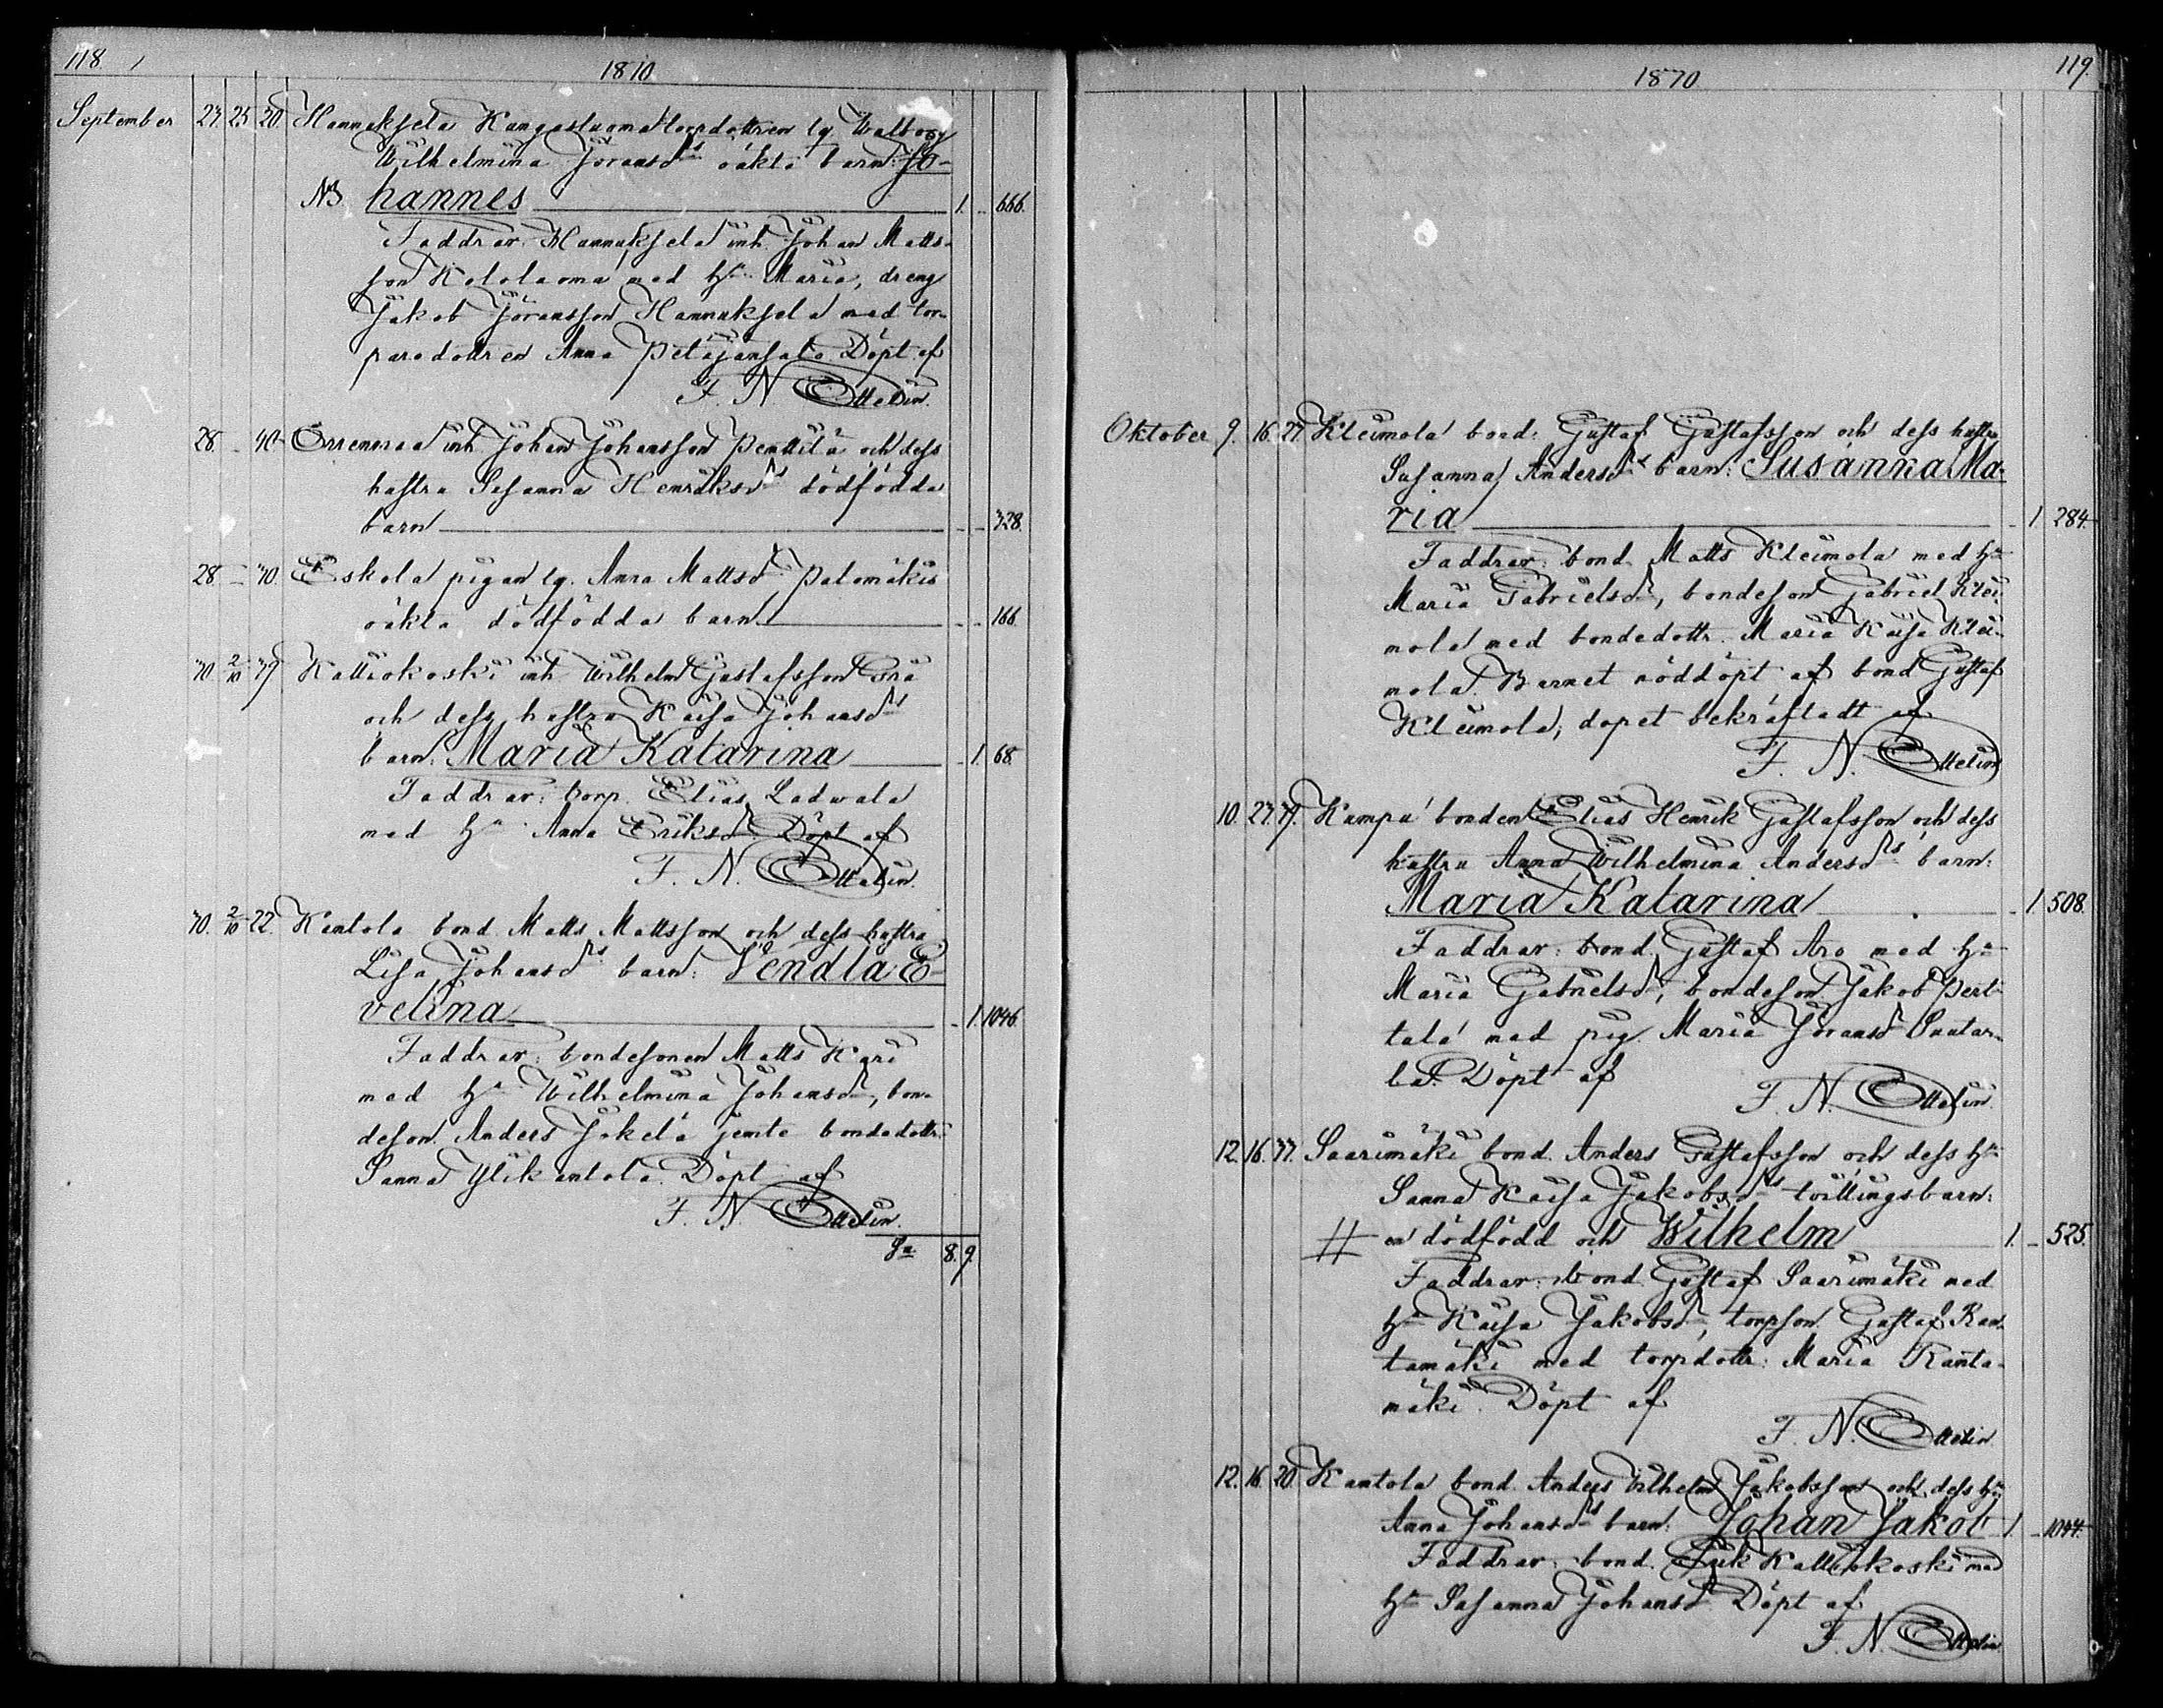 118.
1870
September 23. 25. 20. Hannuksela Kangasluoma torpdottren lg. Walborg
Wilhelmina Jöransdrs oäkta barn: Jo-
NB hannes 1. - 666.
Faddrar: Hannuksela inh. Johan Matts-
son Kololaoma med hu Maria, dreng
Jakob Jöransson Hannuksela med tor-
paredottren Anna Petäjänsalo. Döpt af
F. N. Ottelin.
28. - 40. Orrenmaa inh. Johan Johansson Penttilä och dess
hustru Susanna Henriksdrs dödfödda
barn - - 328.
28. - 30. Eskola pigan lg. Anna Mattsdr Palomäkis
oäkta dödfödda barn - - 166.
30. 2/10 39. Kattiokoski inh. Wilhelm Gustafsson Grä
och dess hustru Kaisa Johansdrs
barn: Maria Katarina - 1. 68.
Faddrar: torp. Elias Ladwala
med hu Anna Eriksdr. Döpt af
F. N. Ottelin.
30. 2/10 22. Kantola bond. Matts Mattsson och dess hustru
Lisa Johansdrs barn: Vendla E-
velina - 1. 1046.
Faddrar: bondesonen Matts Kari
med hu Wilhelmina Johansdr, bon-
deson. Anders Jokela jemte bondedottr.
Sanna Ylikantola. Döpt af
F. N. Ottelin.
Sa 8. 9.
119.
1870
Oktober 9. 16. 27. Kleimola bond. Gustaf Gustafsson och dess hustru
Susanna Andersdrs barn: Susanna Ma-
ria - 1. 284.
Faddrar: bond. Matts Kleimola med hu
Maria Gabrielsdr, bondeson Gabriel Klei-
mola med bondedottr. Maria Kaisa Klei-
mola. Barnet nöddöpt af bond. Gustaf
Kleimola, dopet bekräftadt af
F. N. Ottelin
10. 23. 39. Kampa bonden Elias Henrik Gustafsson och dess
hustru Anna Wilhelmina Andersdrs barn:
Maria Katarina - 1. 508.
Faddrar: bond. Gustaf Aro med hu
Maria Gabrielsdr, bondeson Jakob Pert-
tula med pig. Maria Jöransdr Luutar-
la. Döpt af
F. N. Ottelin.
12. 16. 37. Saarimäki bond. Anders Gustafsson och dess hu
Sanna Kaisa Jakobsdrs tvillingsbarn:
# en dödfödd och Wilhelm 1. - 525.
Faddrar: bond. Gustaf Saarimäki med
hu Kaisa Jakobsdr, torpson. Gustaf Ran-
tamäki med torpdottr: Maria Ranta-
mäki. Döpt af
F. N. Ottelin.
12. 16. 20. Kantola bond. Anders Wilhelm Jakobsson och dess hu
Anna Johansdrs barn: Johan Jakob 1. - 1044.
Faddrar: bond. Erik Kattiokoski med
hu Susanna Johansdr. Döpt af
F. N. Ottelin